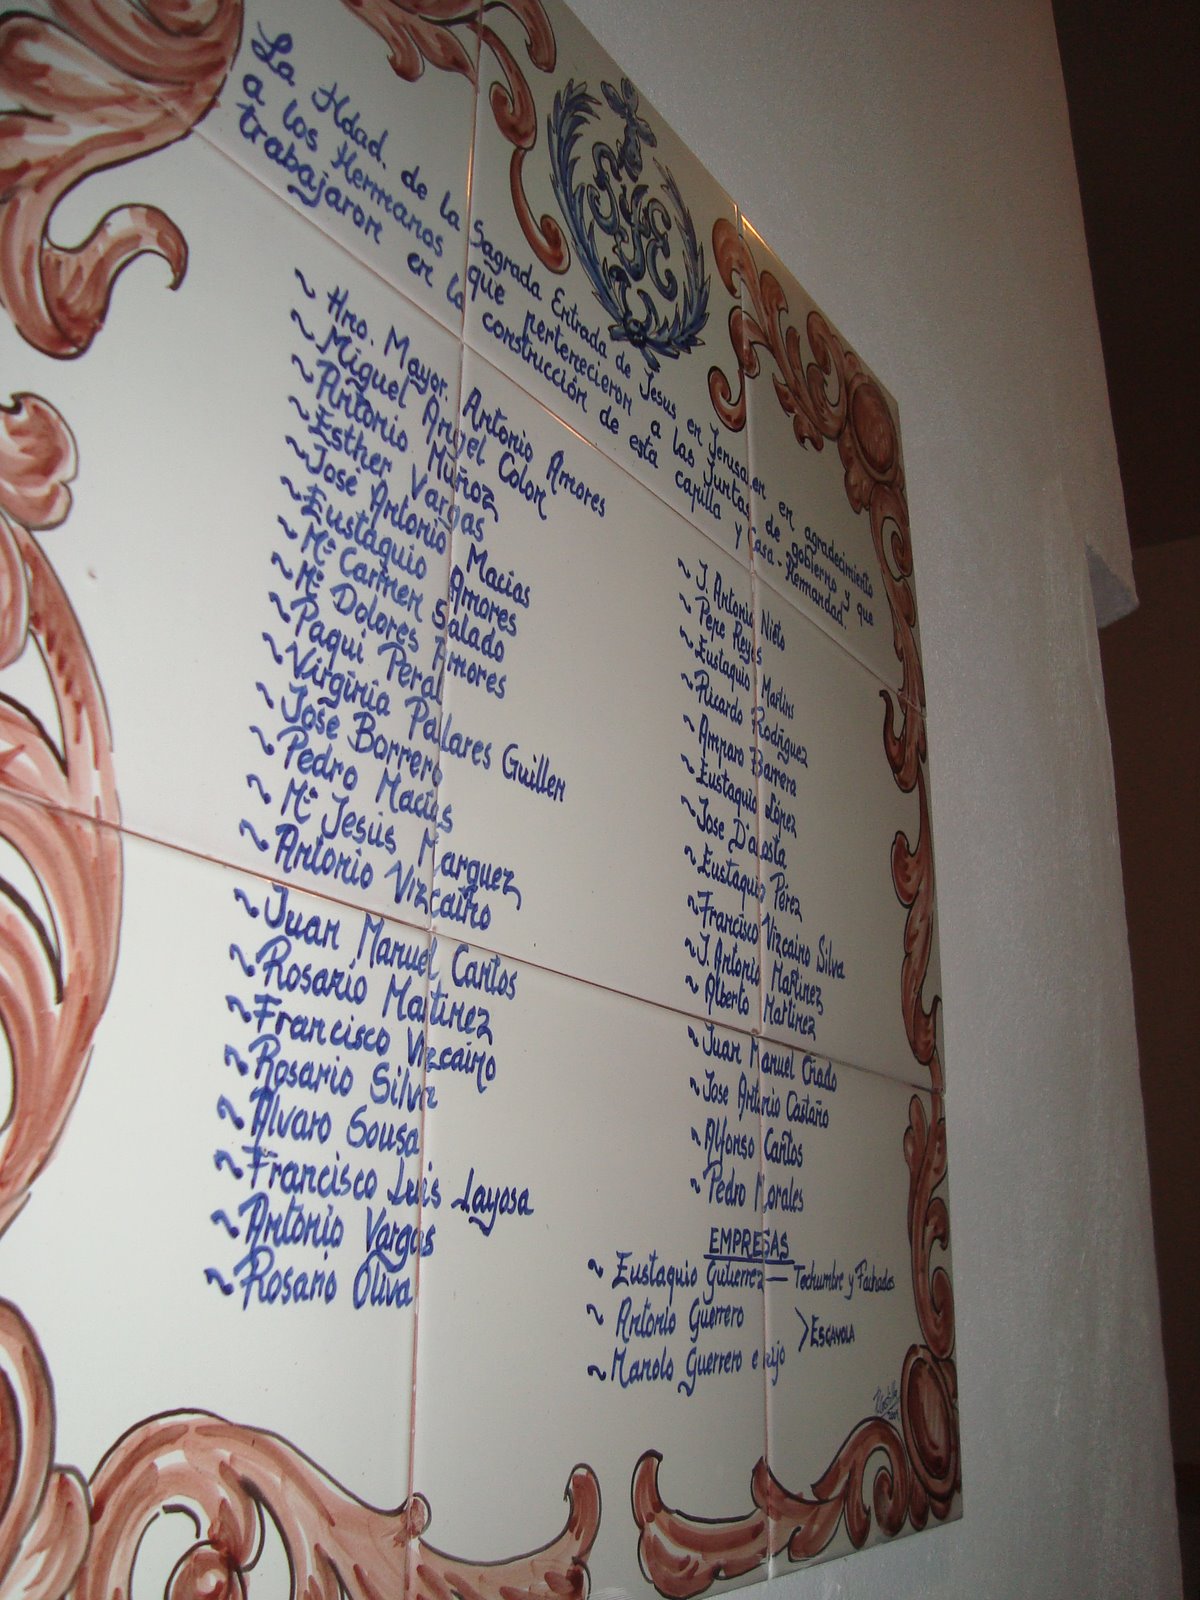 La Hdad. de la Sagrada Entrada de Jesus en Jerusalen en agradecimiento
a los Hermanos que pertenecieron a las Juntas de gobierno y que
trabajaron en la construcción de esta capilla y Casa-Hermandad.
~ Hno. Mayor. Antonio Amores
~ Miguel Angel Colon
~ Antonio Muñoz
~ Esther Vargas
~ José Antonio Macías
~ Eustaquio Amores
~ Mª Carmen Salado
~ Mª Dolores Amores
~ Paqui Peral
~ Virginia Pallares Guillen
~ José Borrero
~ Pedro Macías
~ Mª Jesús Marquez
~ Antonio Vizcaíno
~ Juan Manuel Cantos
~ Rosario Martinez
~ Francisco Vizcaíno
~ Rosario Silva
~ Alvaro Sousa
~ Francisco Luis Layosa
~ Antonio Vargas
~ Rosario Oliva
~ J. Antonio Nieto
~ Pepe Reyes
~ Eustaquio Martins
~ Ricardo Rodriguez
~ Amparo Barrera
~ Eustaquio López
~ Jose D'acosta
~ Eustaquio Pérez
~ Francisco Vizcaino Silva
~ J. Antonio Martinez
~ Alberto Martinez
~ Juan Manuel Criado
~ Jose Antonio Castaño
~ Alfonso Cantos
~ Pedro Morales
EMPRESAS
~ Eustaquio Gutierrez — Techumbre y Fachadas
~ Antonio Guerrero
> ESCAYOLA
~ Manolo Guerrero e hijo